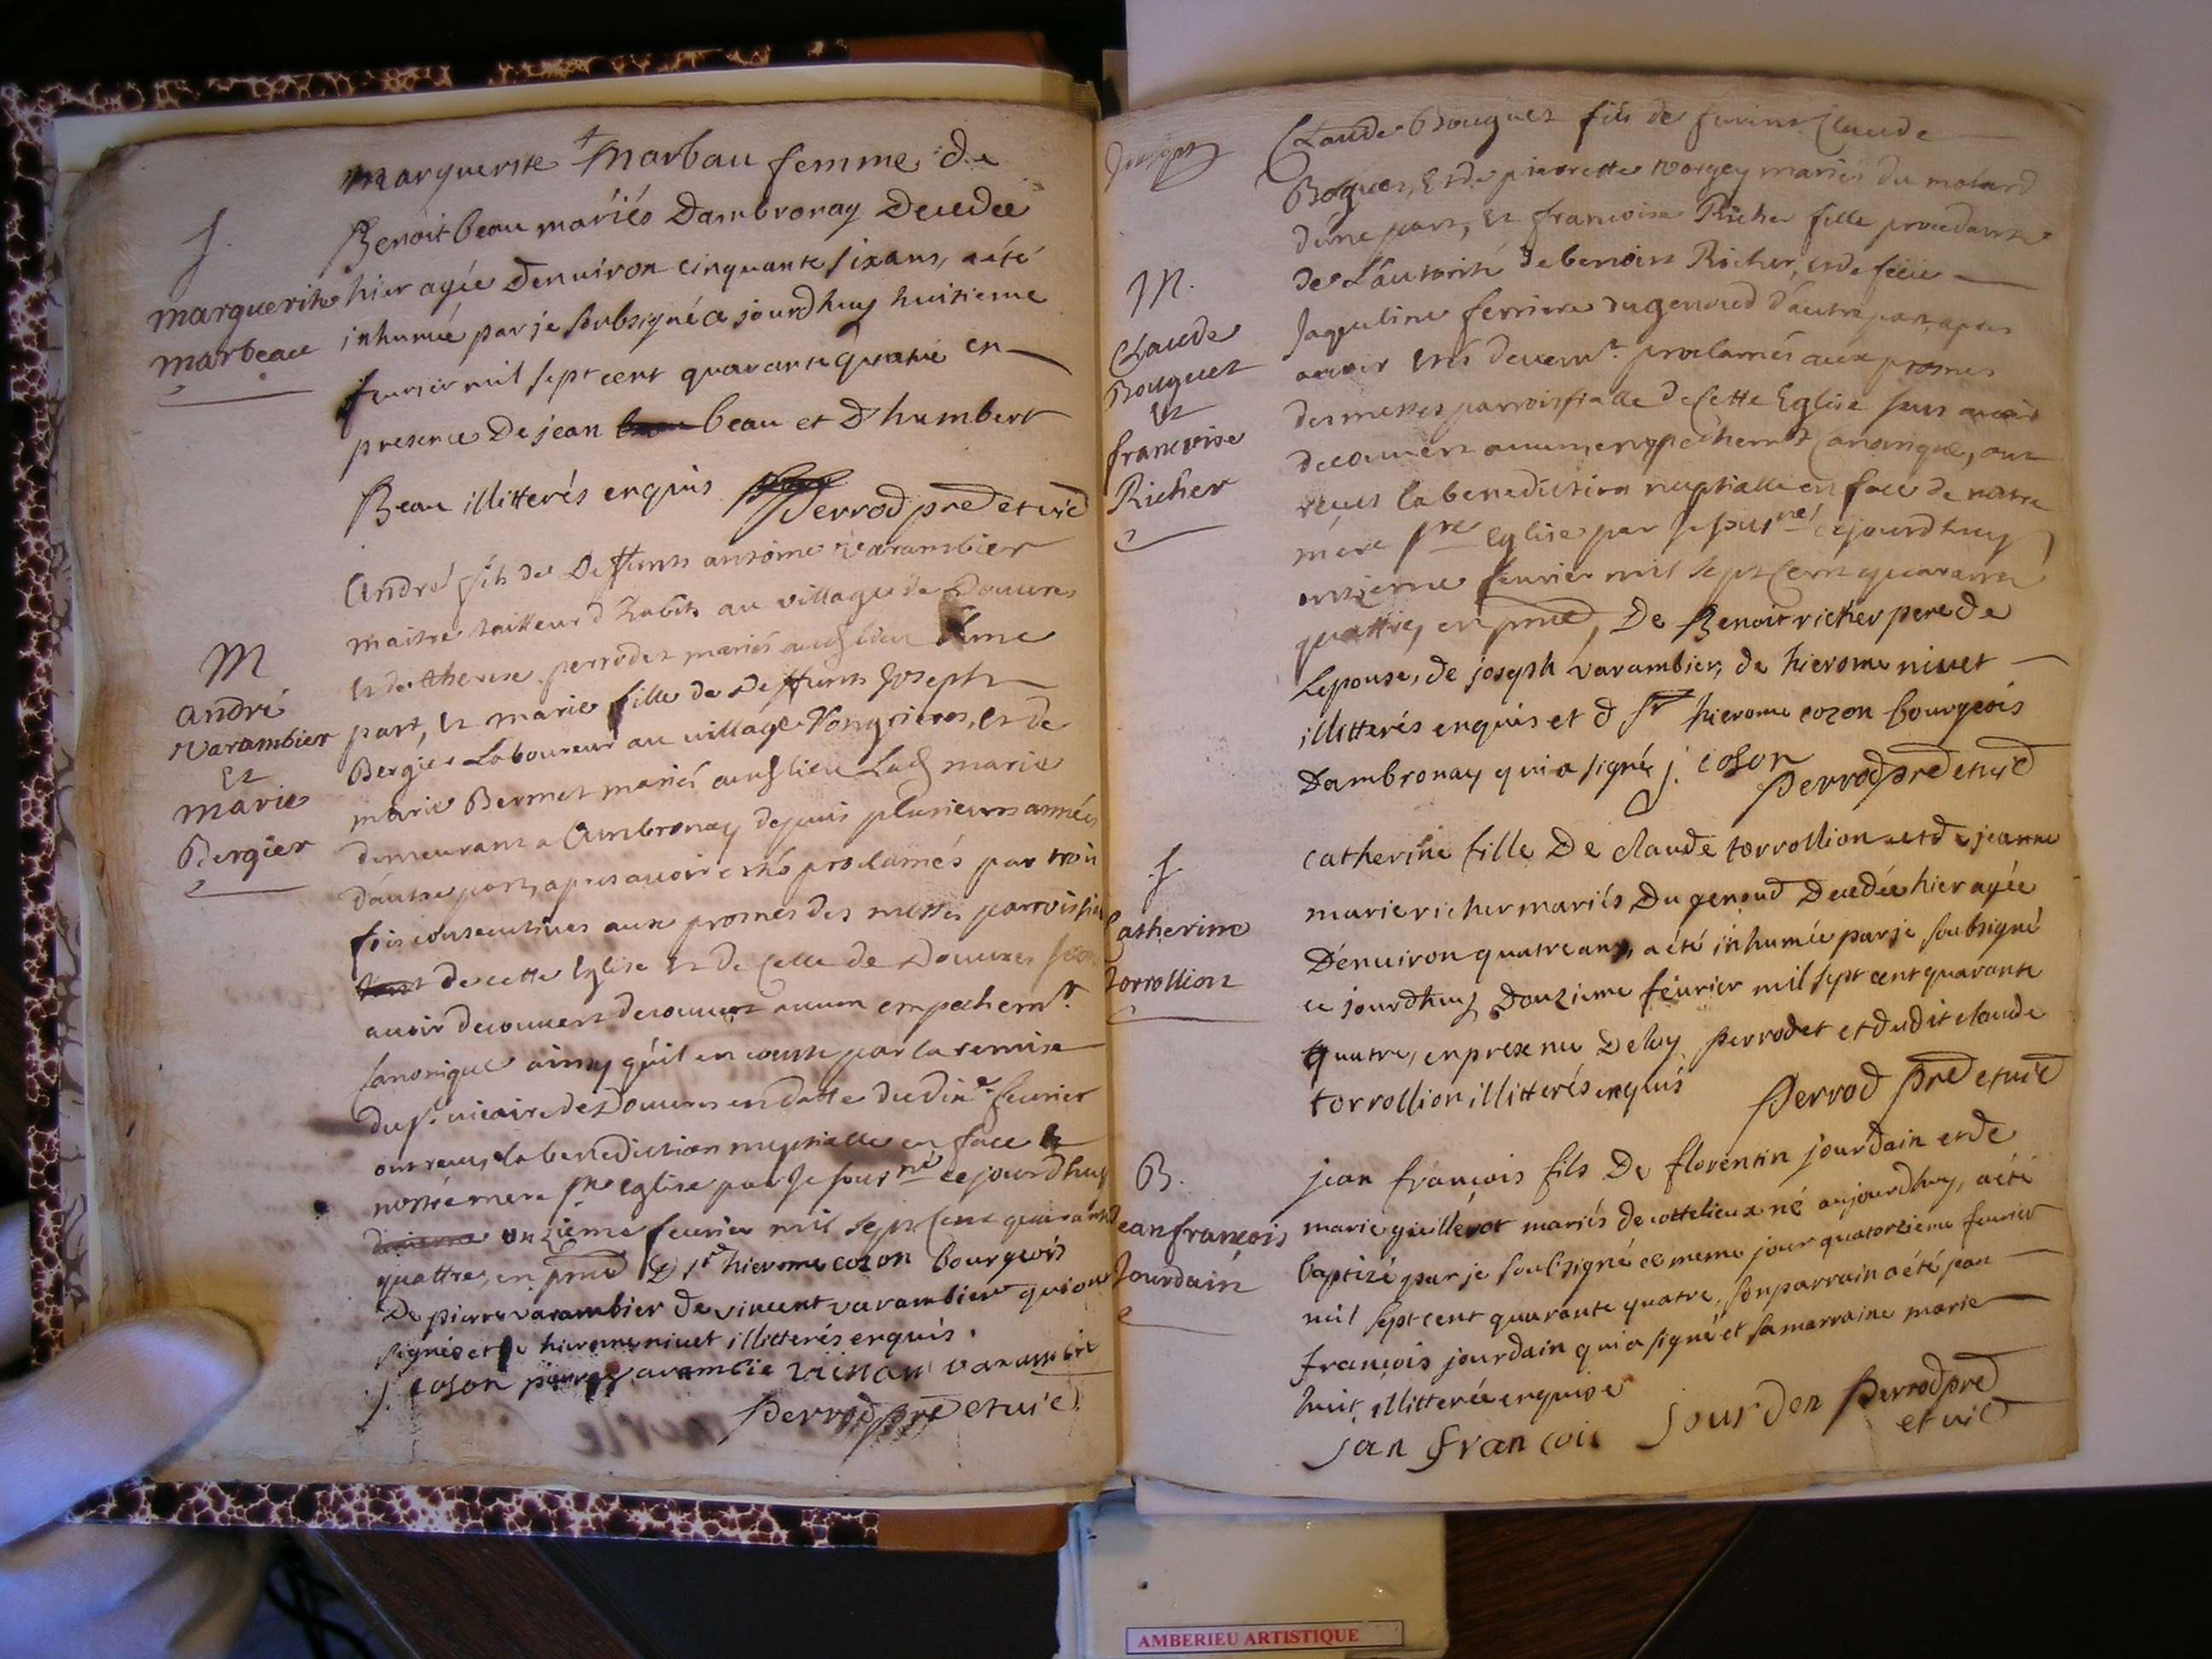 marguerite marbau femme de
Benoit beau mariés Dambronay Decedée
hier agée Denuiron cinquante six ans, a été
inhumée par je soubsigné a jourdhuy huitieme
feurier mil sept cent quarante quatre en
presence De jean beau et D humbert
Beau illitterés enquis Perrod pre et vic
f.
marguerite
marbeau
André fils de Deffunts antoine varambier
maitre tailleur d habits au village de Douures
et de therese perrodet mariés aud lieu d'une
part, et marie fille de Deffunts Joseph
Bergier Laboureur au village et de
marie Bermet mariés aud lieu Lad marie
demeurant a Ambronay depuis plusieurs années
d'autre part, apres auoir estés proclamés par trois
fois consecutiues aux prosnes des messes parroissia
de cette Eglise et de Celle de Douures
auoir decouuert decouuert aucun empechemt
Canonique ainsy qu'il en conste par la remise
du sr. uicaire de Douures en datte du feurier
ont reçus la benediction nuptialle en face
nostre mere ste eglise par Je sousné ce jourdhuy
onzieme feurier mil sept Cent quarante
quattre, en pnce D sr hierome cozon bourgeois
De pierre varambier de vincent varambier qui ont
signés et hierome niuet illitterés enquis.
j. coson varambie vincan varambie
Perrod pre et uic
M
André
Varambier
Et
marie
Bergier
Claude Bouguet fils de Claude
Boguet, et de pierrette mariés du molard
d'une part, et francoise Richer fille procedante
de L'autorité de benoist Richer, et de feüe
Jaqueline ferriere du genoud d'autre part, apres
auoir étés deuemt. proclamés aux prosnes
des messes parroissialle de Cette Eglise sans auoir
decouuert aucun empechemt Canonique, ont
reçus la benediction nuptialle en face de notre
mere ste Eglise par je sousné cejourdhuy
onzieme feurier mil sept Cent quarante
quattre, en pnce, De Benoit richer pere de
Lepouse, de joseph varambier, de hierome niuet
illitterés enquis et d sr hierome cozon bourgeois
Dambronay qui a signé j. coson
Perrod pre et vic
M.
Claude
Bouguet
Et
francoise
Richer
catherine fille De claude torrollion et de jeanne
marie richer mariés Du genoud Decedée hier agée
Dénuiron quatre ans, a été inhumée par je soubsigné
ce jourdhuy Douzieme feurier mil sept cent quarante
quatre, en presence De perrodet et dudit claude
torrollion illitterés enquis Perrod pre et uic
f
Catherine
torrollion
jean françois fils De florentin jourdain et de
marie guillerot mariés de cottelieux né aujourdhuy, a été
baptizé par je soubsigné ce meme jour quatorzieme feurier
mil sept cent quarante quatre, son parrain a été jean
françois jourdain qui a signé et sa marraine marie
huit, illitterée enquise
jan francois jourden Perrod pre
et vic
B.
Jean françois
Jourdain
AMBERIEU ARTISTIQUE